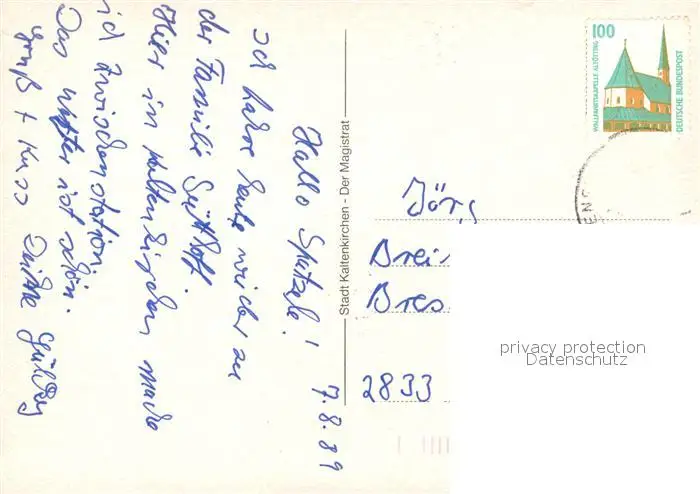 7.8.89
Hallo Spatzele!
Ich habe heute wieder zu
der Familie
Hier in Kaltenkirchen mache
ich Zwischenstation.
Das Wetter ist schön.
Gruß + Kuss Deine
Stadt Kaltenkirchen - Der Magistrat
100
WALLFAHRTSKAPELLE ALTÖTTING
DEUTSCHE BUNDESPOST
Jörg
Brei
Bres
2833
privacy protection
Datenschutz